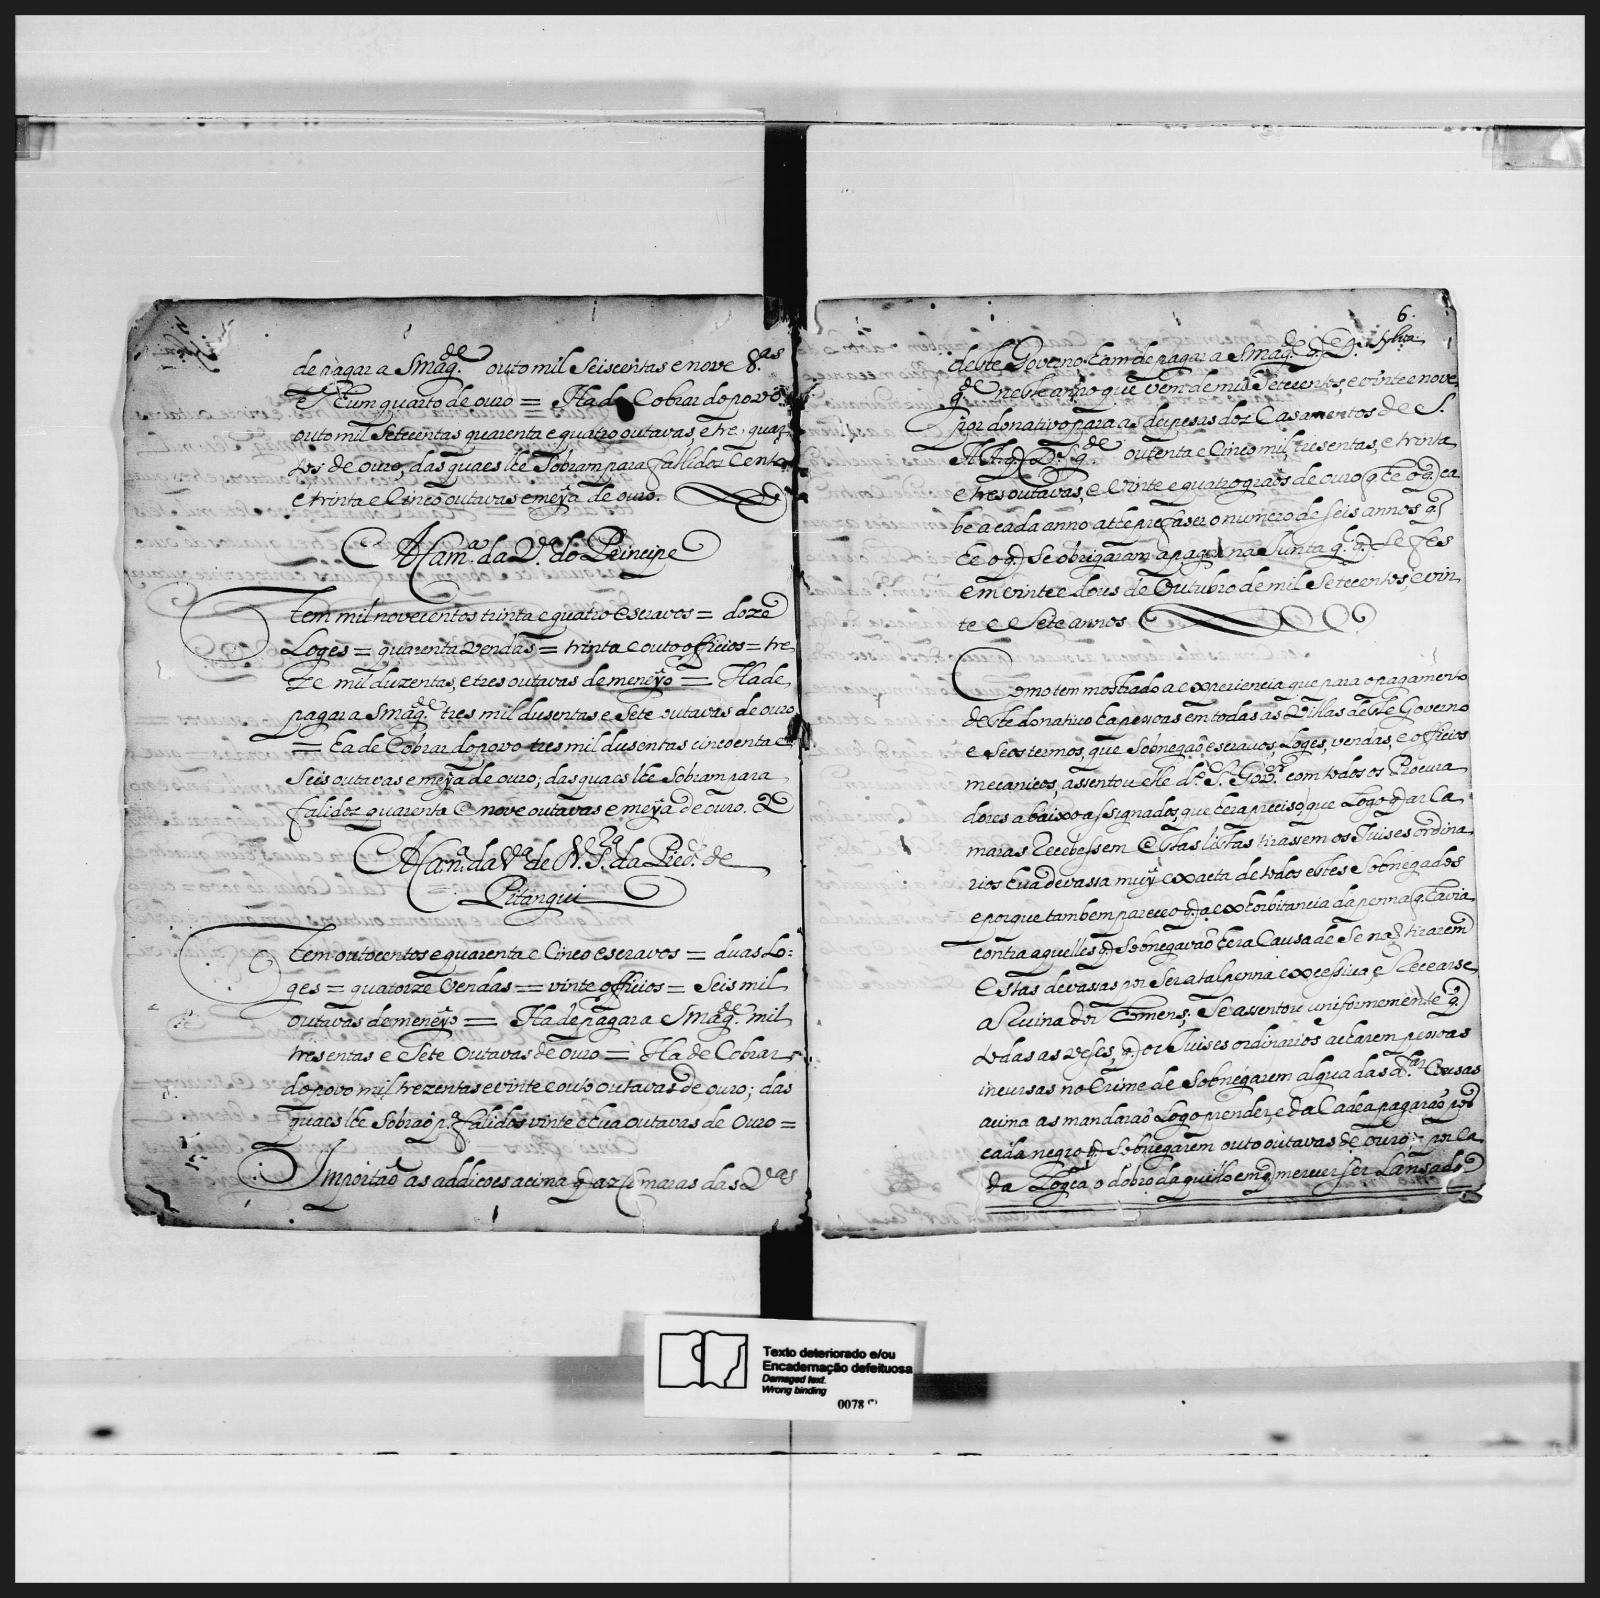 de pagar a S mag.de outo mil Seiscentas e nove 8.as
e hum quarto de ouro = Ha de Cobrar do povo
outo mil Setecentas quarenta e quatro outavas, e tres quar
tos de ouro, das quaes lhe Sobram para fallidos Cento
e trinta e Cinco outavas e meya de ouro.
A Cam.a da V.a do Principe
Tem mil novecentos trinta e quatro escravos = doze
Loges = quarenta vendas = trinta e outo officios = tre
ze mil duzentas, e tres outavas de meneyo = Ha de
pagar a S mag.de tres mil dusentas e Sete outavas de ouro
= ha de Cobrar do povo tres mil dusentas cincoenta e
Seis outavas e meya de ouro; das quaes lhe Sobram para
falidos quarenta e nove outavas e meya de ouro.
A Cam.a da V.a de N. S.ra da Pied.e de
Pitangui
Tem outocentos e quarenta e Cinco escravos = duas Lo=
ges = quatorze Vendas = vinte officios = Seis mil
outavas de meneyo = Ha de pagar a S mag.de mil
tresentas e Sete Outavas de ouro = Ha de Cobrar
do povo mil trezentas e vinte e outo outavas de ouro; das
quaes lhe Sobraõ p.a falidos vinte e hua outavas de Ouro =
Importaõ as addicoes acima q as Camaras das V.as
6.
deste Governo ham de pagar a S mag.de q D.s
g.de neste anno que vem de mil Setecentos, e vinte e nove
por donativo para as despesas dos Casamentos de S.
A A. q D.s g.de outenta e Cinco mil, tresentas, e trinta
e tres outavas, e Vinte e quatro graõs de ouro q he o q ca
be a cada anno athe prefaser o numero de seis annos q
he o q Se obrigaram a pagar na Junta g.l q Se fes
em vinte e dous de Outubro de mil Setecentos, e vin
te e Sete annos
Como tem mostrado a experiencia que para o pagamento
deste donativo ha pessoas em todas as Villas deste Governo
e Seos termos, que Sobnegaõ escravos, Loges, vendas, e officios
mecanicos, assentou elle d.o S.r Gov.or com todos os Procura
dores abaixo assignados, que hera preciso, que Logo q as Ca
maras Recebessem Estas listas tirassem os Juises ordina
rios hua devassa muy exacta de todos estes Sobnegados
e porque tambem pareceo q a exhorbitancia da penna q havia
contra aquelles q Sobnegavaõ hera Causa de Se naõ tirarem
Estas devassas por Ser a tal penna excessiva, e Recearse
a Ruina dos homens; Se assentou uniformemente q
todas as veses, q os Juises ordinarios acharem pessoas
incursas no Crime de Sobnegarem algua das d.tas Cousas
acima as mandaraõ Logo prender, e da Cadea pagaraõ por
cada negro q Sobnegarem outo outavas de ouro; por ca
da Logea o dobro daquillo em q merecer ser Lansado
Texto deteriorado e/ou
Encadernação defeituosa
Damaged text.
Wrong binding
0078 (*)